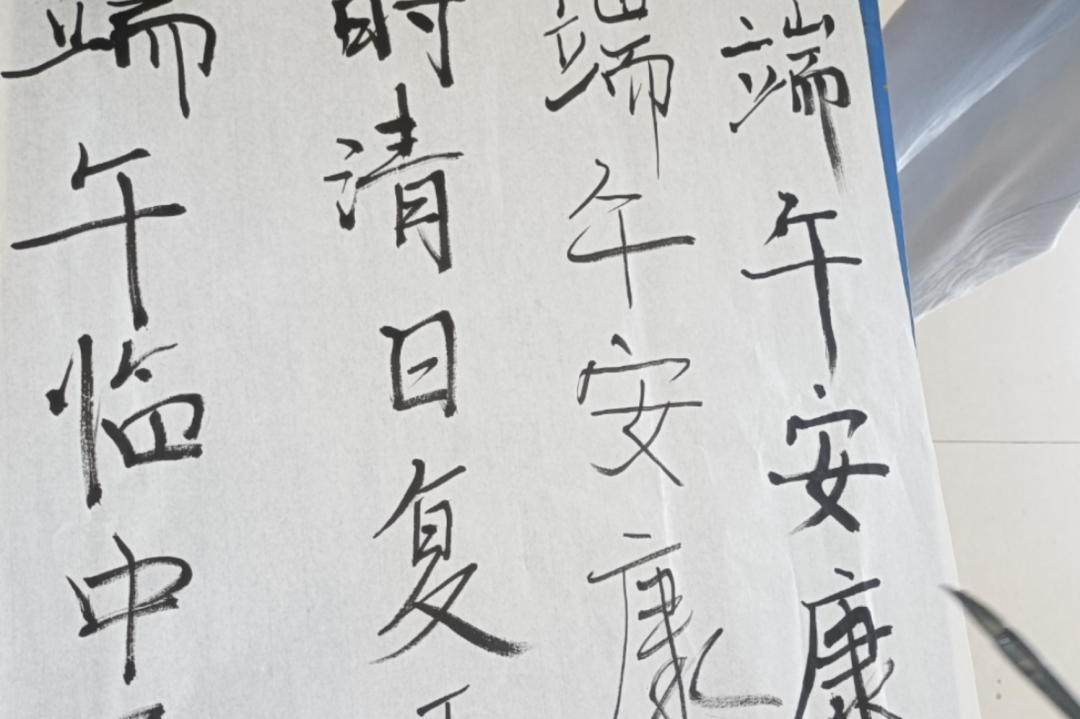 端午安康
端午安康
时清日复
端午临中